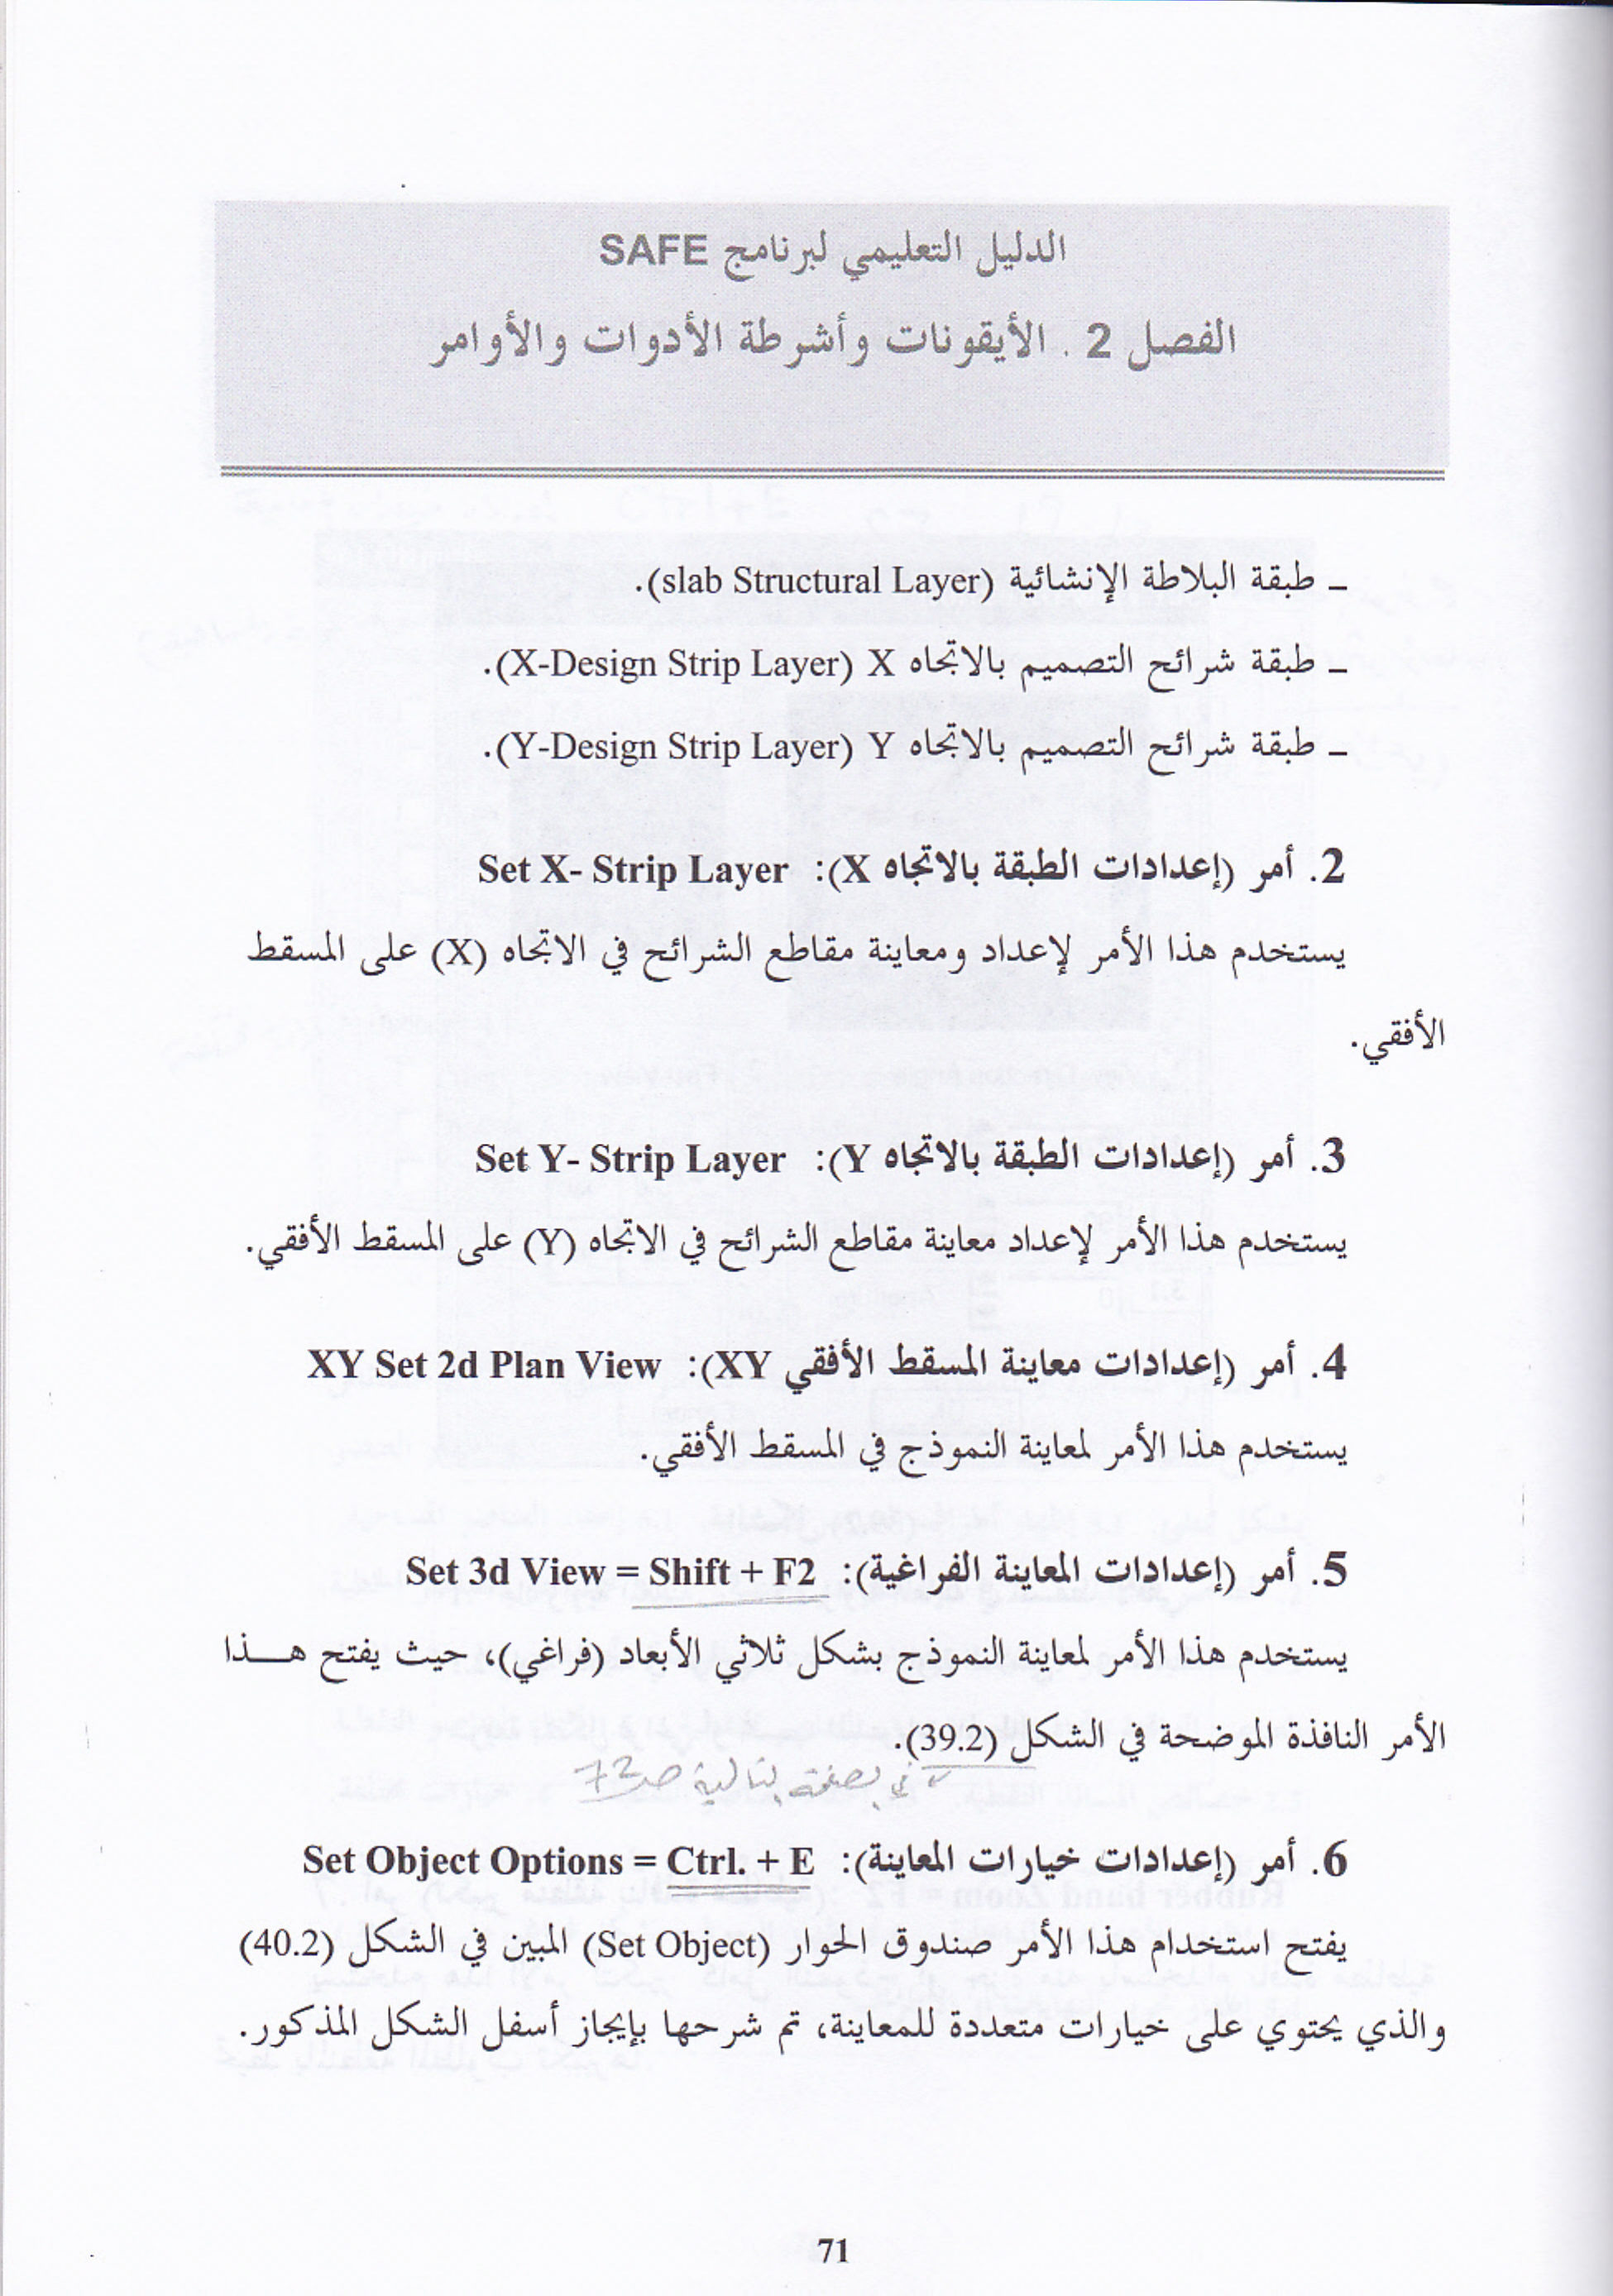 الدليل التعليمي لبرنامج SAFE
الفصل 2 . الأيقونات وأشرطة الأدوات والأوامر
ـ طبقة البلاطة الإنشائية (slab Structural Layer).
ـ طبقة شرائح التصميم بالاتجاه X (X-Design Strip Layer).
ـ طبقة شرائح التصميم بالاتجاه Y (Y-Design Strip Layer).
2. أمر (إعدادات الطبقة بالاتجاه X): Set X- Strip Layer
يستخدم هذا الأمر لإعداد ومعاينة مقاطع الشرائح في الاتجاه (X) على المسقط
الأفقي.
3. أمر (إعدادات الطبقة بالاتجاه Y): Set Y- Strip Layer
يستخدم هذا الأمر لإعداد معاينة مقاطع الشرائح في الاتجاه (Y) على المسقط الأفقي.
4. أمر (إعدادات معاينة المسقط الأفقي XY): XY Set 2d Plan View
يستخدم هذا الأمر لمعاينة النموذج في المسقط الأفقي.
5. أمر (إعدادات المعاينة الفراغية): Set 3d View = Shift + F2
يستخدم هذا الأمر لمعاينة النموذج بشكل ثلاثي الأبعاد (فراغي)، حيث يفتح هـــذا
الأمر النافذة الموضحة في الشكل (39.2).
في بصفحة بتالية ص72
6. أمر (إعدادات خيارات المعاينة): Set Object Options = Ctrl. + E
يفتح استخدام هذا الأمر صندوق الحوار (Set Object) المبين في الشكل (40.2)
والذي يحتوي على خيارات متعددة للمعاينة، تم شرحها بإيجاز أسفل الشكل المذكور.
71